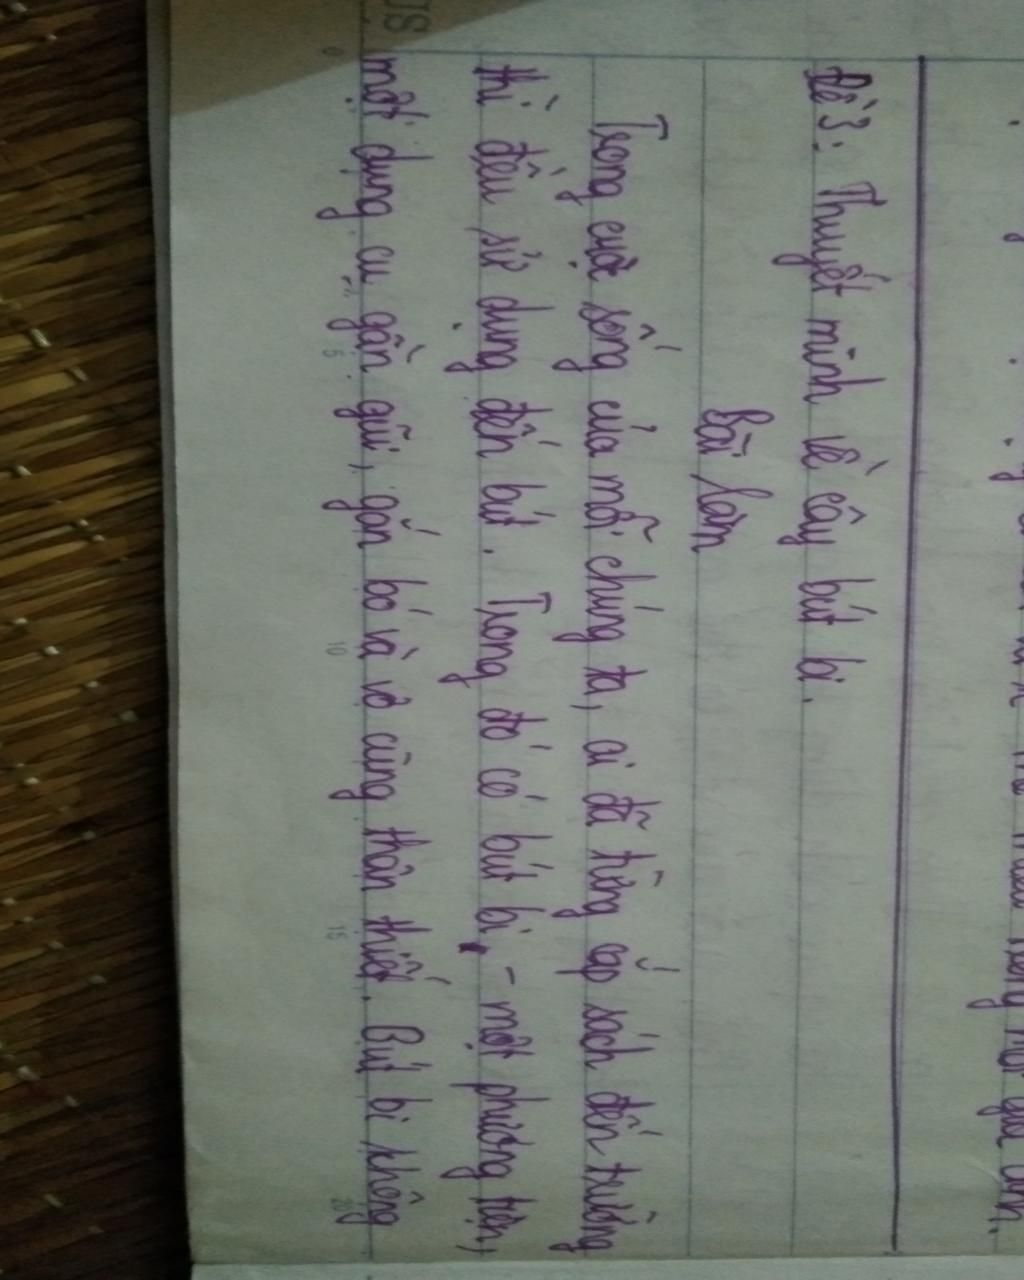 Đề 3: Thuyết minh về cây bút bi.
Bài làm
Trong cuộc sống của mỗi chúng ta, ai đã từng cắp sách đến trường
thì đều sử dụng đến bút. Trong đó có bút bi, - một phương tiện,
một dụng cụ gần gũi, gắn bó và vô cùng thân thiết. Bút bi không
5
10
15
20
US